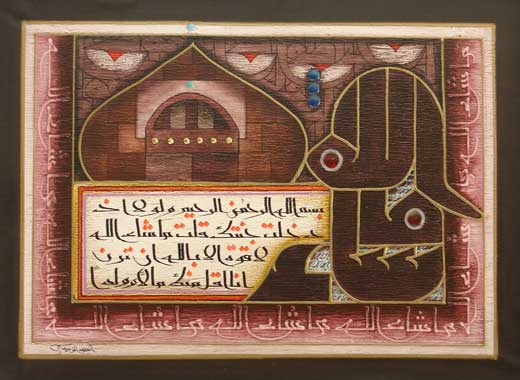 ما شاء الله
بسم الله الرحمن الرحيم ولولا اذ
دخلت جنتك قلت ما شاء الله
لا قوة الا بالله ان ترن
انا اقل منك مالا وولدا
ما شاء الله ما شاء الله ما شاء الله